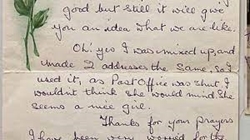 good but still it will give
you an idea what we are like.
Oh! yes I was mixed up, and
made 2 addresses the same, so I
used it, as Post Office was shut, I
wouldn't think she would mind. She
seems a nice girl.
Thanks for your prayers
I have been very worried for the